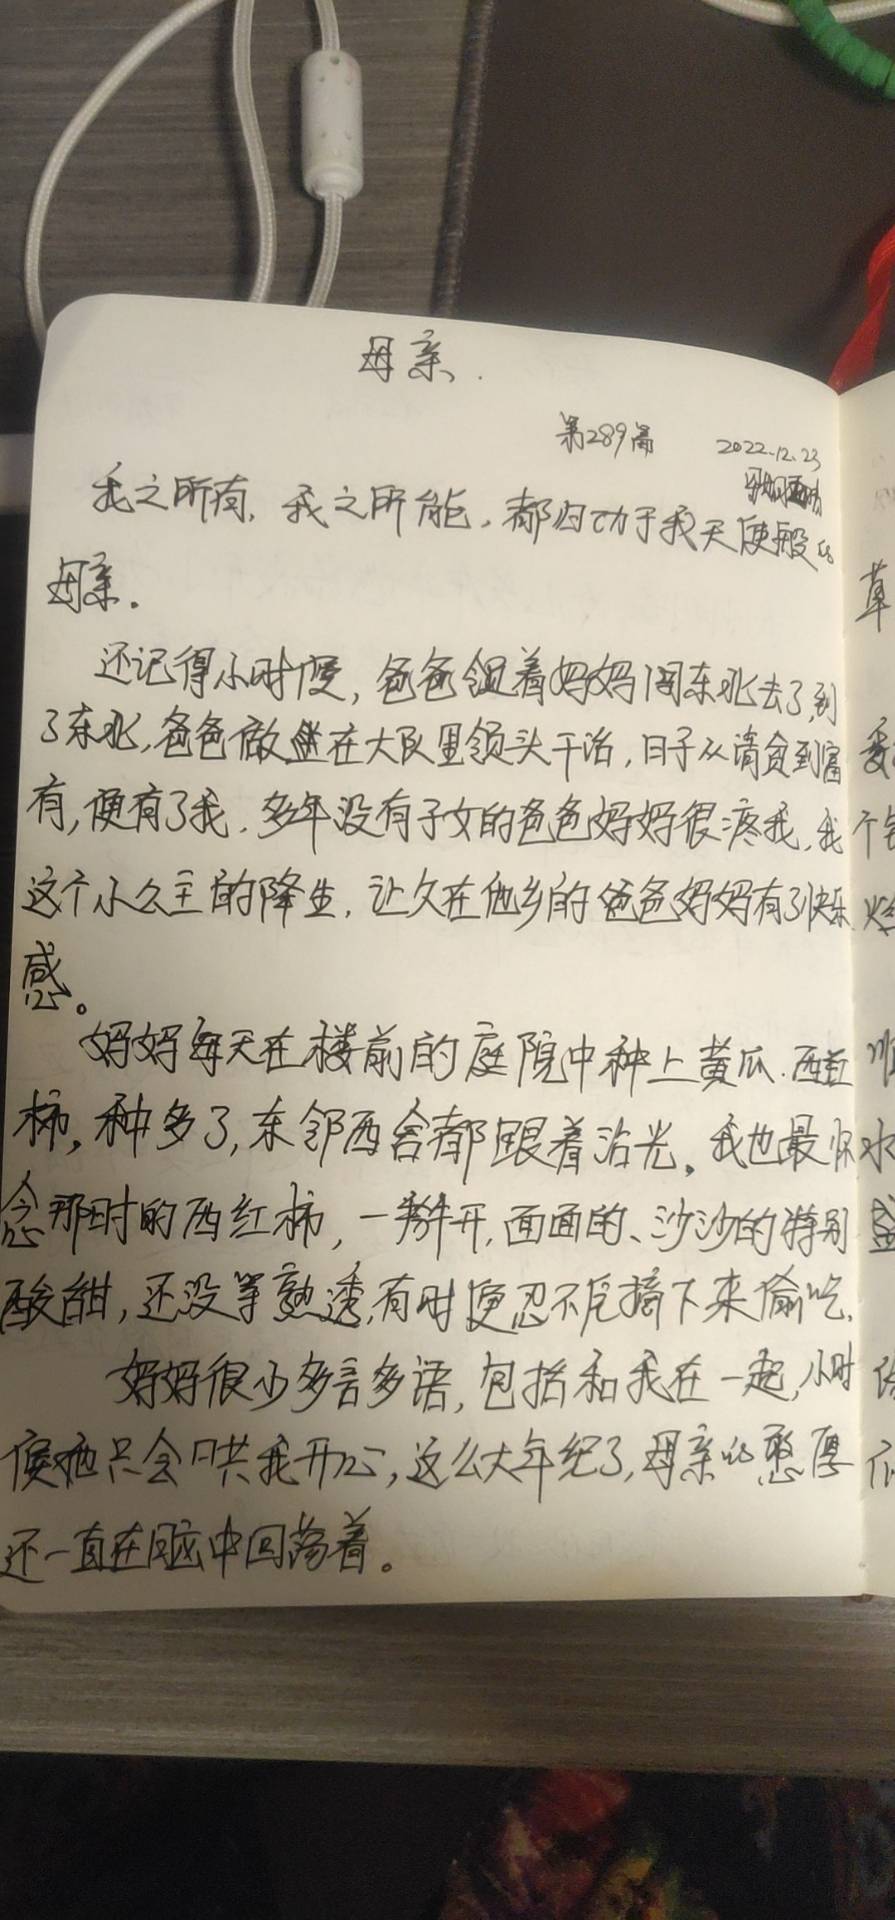 母亲.
第289篇
2022.12.23
我之所有,我之所能,都归功于我天使般的
母亲.
还记得小时侯,爸爸领着妈妈闯东北去了,到
了东北,爸爸做 在大队里领头干活,日子从清贫到富
有,便有了我.多年没有子女的爸爸妈妈很疼我,我
这个小公主的降生,让久在他乡的爸爸妈妈有了快乐
感。
妈妈每天在楼前的庭院中种上黄瓜.西红
柿,种多了,东邻西舍都跟着沾光。我也最怀
念那时的西红柿,一掰开,面面的、沙沙的特别
酸甜,还没等熟透,有时便忍不住摘下来偷吃.
妈妈很少多言多语,包括和我在一起,小时
侯她只会哄我开心,这么大年纪了,母亲的憨厚
还一直在脑中回荡着。
草
个
水